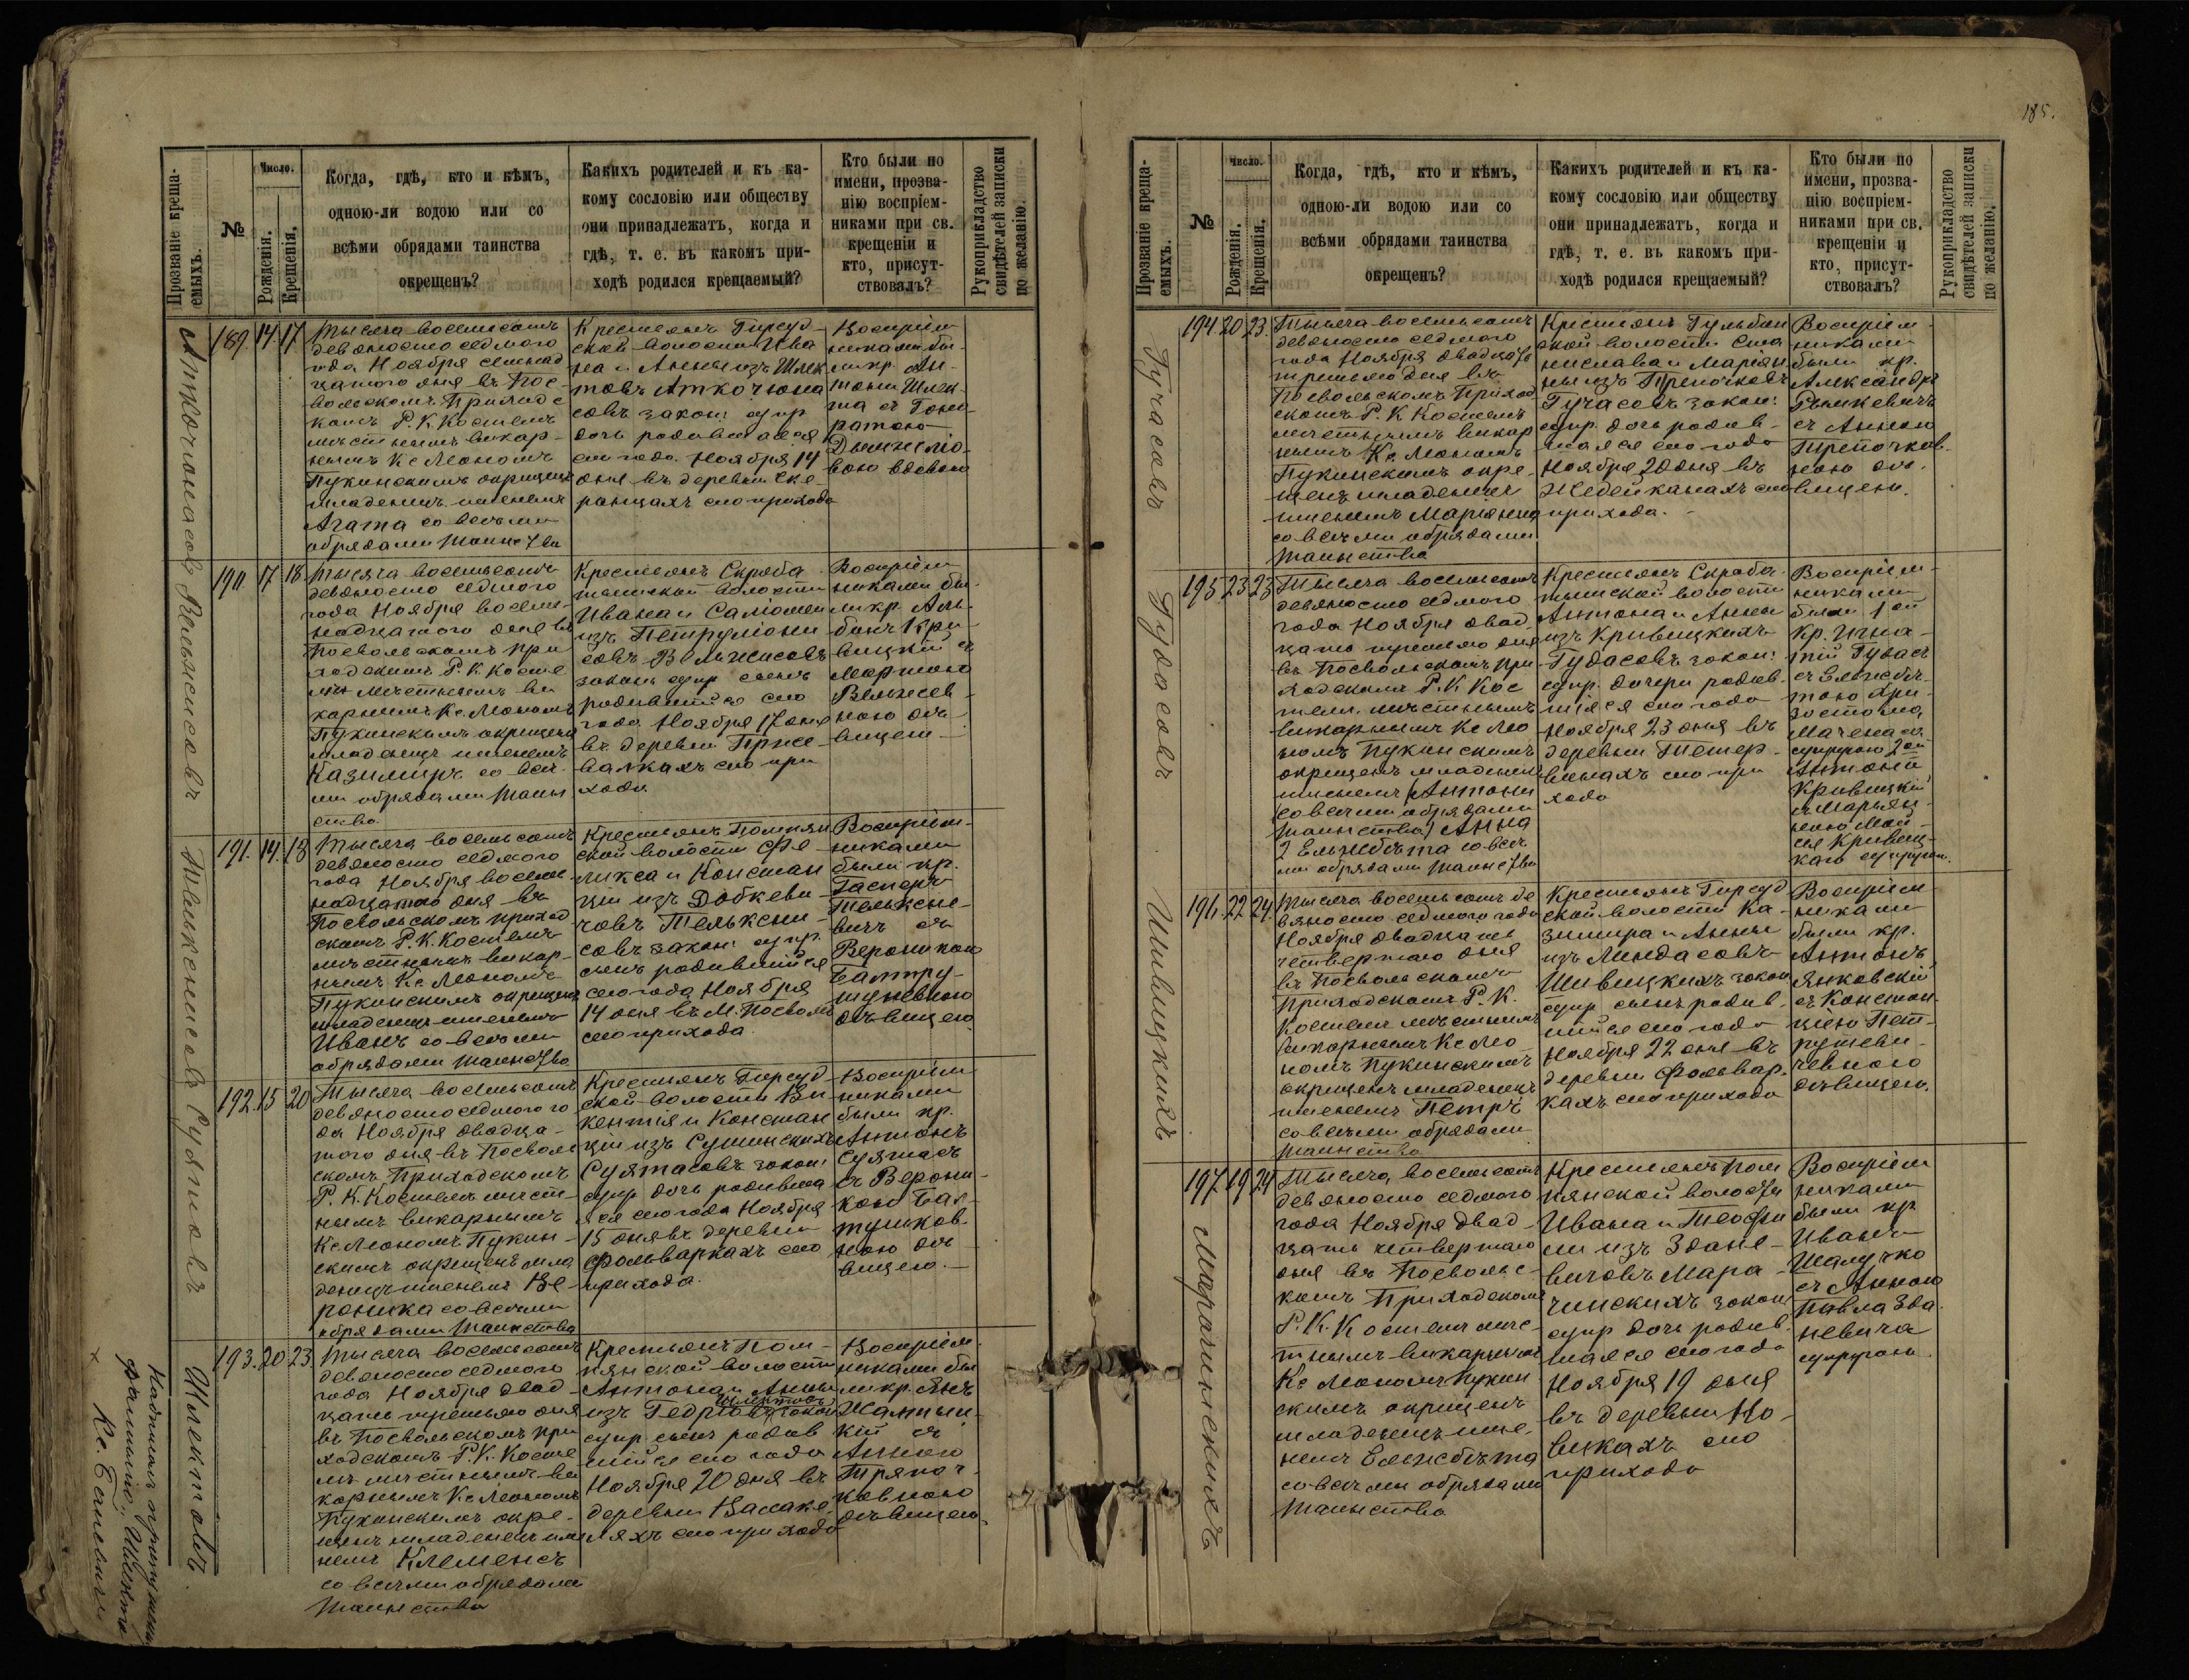 185.
Прозваніе креща-
емыхъ.
№
Число.
Рожденія.
Крещенія.
Когда, гдѣ, кто и кѣмъ,
одною-ли водою или со
всѣми обрядами таинства
окрещенъ?
Какихъ родителей и къ ка-
кому сословію или обществу
они принадлежатъ, когда и
гдѣ, т. е. въ какомъ при-
ходѣ родился крещаемый?
Кто были по
имени, прозва-
нію воспріем-
никами при св.
крещеніи и
кто, присут-
ствовалъ?
Рукоприкладство
свидѣтелей записки
по желанію.
189. 14. 17.
Тысяча восемьсотъ
девяносто седмого
года Ноября семнад
цатого дня въ Пос-
вольскомъ Приходс
комъ Р. К. Костелѣ
мѣстнымъ викар-
нымъ Кс Леономъ
Пукинскимъ окрещенъ
младенецъ именемъ
Агата со всѣми
обрядами таинства
Крестьянъ Гирсуд
ской волости Ива
на и Анны изъ Шлек
товъ Аткочюна
совъ закон: супр
дочь родившаяся
сего года Ноября 14
дня въ деревни Ске-
ранцахъ сего прихода
Воспріем
никами бы-
ли кр. Ан-
тони Шлек-
та съ Гоно
ратою
вою вдовою
190 17 18.
Тысяча восемьсотъ
девяносто седмого
года Ноября восем-
надцатого дня въ
Посвольскомъ При
ходскомъ Р. К. Косте
лѣ мѣстнымъ ви
карнымъ Кс. Леономъ
Пукинскимъ окрещенъ
младенецъ именемъ
Казимиръ со всѣ-
ми обрядами таин
ства
Крестьянъ Скроба
тышской волости
Ивана и Саломеи
изъ Петрулюни
совъ Вельжисовъ
законъ супр сынъ
родившійся сего
года Ноября 17 дня
въ деревни Присе-
валкахъ сего при
хода
Воспріем
никами бы-
ли кр. Аль-
бинъ Кри-
вицкій съ
Мартою
ною дѣ-
вицею
191. 14. 18
Тысяча восемьсотъ
девяносто седмого
года Ноября восем-
надцатого дня въ
Посвольскомъ приход
скомъ Р. К. Костелѣ
мѣстнымъ викар-
нымъ Кс Леономъ
Пукинскимъ окрещенъ
младенецъ именемъ
Иванъ со всѣми
обрядами таинства
Крестьянъ Помпян
ской волости Фе-
ликса и Констан
ціи изъ Добкеви-
човъ Тельксни-
совъ закон: супр.
сынъ родившійся
сего года Ноября
14 дня въ М. Посволѣ
сего прихода.
Воспріем-
никами
были кр.
Гасперъ
Тельксне-
вичъ съ
Вероникою
Балтру-
шуневною
дѣвицею
192. 15 20
Тысяча восемьсотъ
девяносто седмого го
да Ноября двадца-
того дня въ Посволь
скомъ Приходскомъ
Р. К. Костелѣ мѣст-
нымъ викарнымъ
Кс Леономъ Пукин-
скимъ окрещенъ мла
денецъ именемъ Ве-
роника со всѣми
обрядами таинства
Крестьянъ Гирсуд
ской волости Ви
кентія и Констан
ціи изъ Сушинскихъ
Суятасовъ закон:
супр дочь родивша
яся сего года Ноября
15 дня въ деревни
Фольваркахъ сего
прихода.
Воспріем
никами
были кр.
Антонъ
Суятасъ
съ Верони-
кою Бал-
тушков-
ною дѣ-
вицею.
193. 20 23.
Тысяча восемьсотъ
девяносто седмого
года Ноября двад-
цать третьяго дня
въ Посвольскомъ при
ходскомъ Р. К. Косте
лѣ мѣстнымъ ви
карнымъ Кс Леономъ
Пукинскимъ окре-
щенъ младенецъ име
немъ Клеменсъ
со всѣми обрядами
таинства
Крестьянъ Пом-
пянской волости
Антона и Анны
Шлектовъ
супр. сынъ родив
шійся сего года
Ноября 20 дня въ
ляхъ сего прихода
Воспріем-
никами бы
ли кр. Янъ
кій съ
Анною
Тряпоч-
ковною
дѣвицею.
Аткочюнасовъ
Вельжисовъ
Тельксенисовъ
Суятовъ
Шлектовъ
фамилію: Шлекта
194. 20 23.
Тысяча восемьсотъ
девяносто седмого
года Ноября двадцать
третьяго дня въ
Посвольскомъ Приход
скомъ Р. К. Костелѣ
мѣстнымъ викар
нымъ Кс. Леономъ
Пукинскимъ окре-
щенъ младенецъ
именемъ Маріянна
со всѣми обрядами
таинства
Крестьянъ Гульбин
ской волости Ста
нислава и Маріян
ны изъ Трепочковъ
Гучасовъ закон:
супр. дочь родив-
шаяся сего года
Ноября 20 дня въ
Жедейканахъ сего
прихода.
Воспріем-
никами
были кр.
Александръ
Рымкевичъ
съ Анною
Трепочков-
ною дѣ-
вицею.
195. 23 23
Тысяча восемьсотъ
девяносто седмого
года Ноября двад-
цать третьяго дня
въ Посвольскомъ при
ходскомъ Р. К Кос
телѣ мѣстнымъ
викарнымъ Кс Лео
номъ Пукинскимъ
окрещенъ младенецъ
именемъ 1 Антони
со всѣми обрядами
таинства) Анна
2 Ельжбѣта со всѣ
ми обрядами таинства
Крестьянъ Скроба-
тышской волости
Антона и Анны
изъ Кривицкихъ
Гудасовъ закон:
супр. дочери родив-
шіяся сего года
Ноября 23 дня въ
деревни Тетер-
винахъ сего при
хода
Воспріем-
никами
были 1 ой
Кр. Игна-
тій Гудасъ
съ Елжбѣ-
тою
супругою 2 ой
Антоній
Кривицкій
съ Марьян-
ною
Кривиц-
каго супругою.
196. 22 24.
Тысяча восемьсотъ де
вяносто седмого года
Ноября двадцать
четвертаго дня
въ Посвольскомъ
Приходскомъ Р. К.
Костелѣ мѣстнымъ
викарнымъ Кс Лео
номъ Пукинскимъ
окрещенъ младенецъ
именемъ Петръ
со всѣми обрядами
таинства
Крестьянъ Гирсуд
ской волости Ка-
зимира и Анны
изъ Линдасовъ
Шивицкихъ закон
супр сынъ родив-
шійся сего года
Ноября 22 дня въ
деревни Фольвар-
кахъ сего прихода
Воспріем
никами
были кр.
Антонъ
Янковскій
съ Констан-
ціею Пет-
рушеви-
чевною
дѣвицею.
197 19 24
Тысяча восемьсотъ
девяносто седмого
года Ноября двад-
цать четвертаго
дня въ Посвольс-
комъ Приходскомъ
Р. К. Костелѣ мѣс-
тнымъ викарнымъ
Кс Леономъ Пукин
скимъ окрещенъ
младенецъ име-
немъ Ельжбѣта
со всѣми обрядами
таинства
Крестьянъ Пом
пянской волости
Ивана и Теофи
ли изъ Здане-
вичовъ Мара-
чинскихъ закон:
супр дочь родив-
шаяся сего года
Ноября 19 дня
въ деревни Но-
викахъ сего
прихода
Воспріем
никами
были кр
Иванъ
съ Анною
Павла Зда
невича
супругою.
Гучасовъ
Гудасовъ
Шивицкихъ
Марачинскихъ